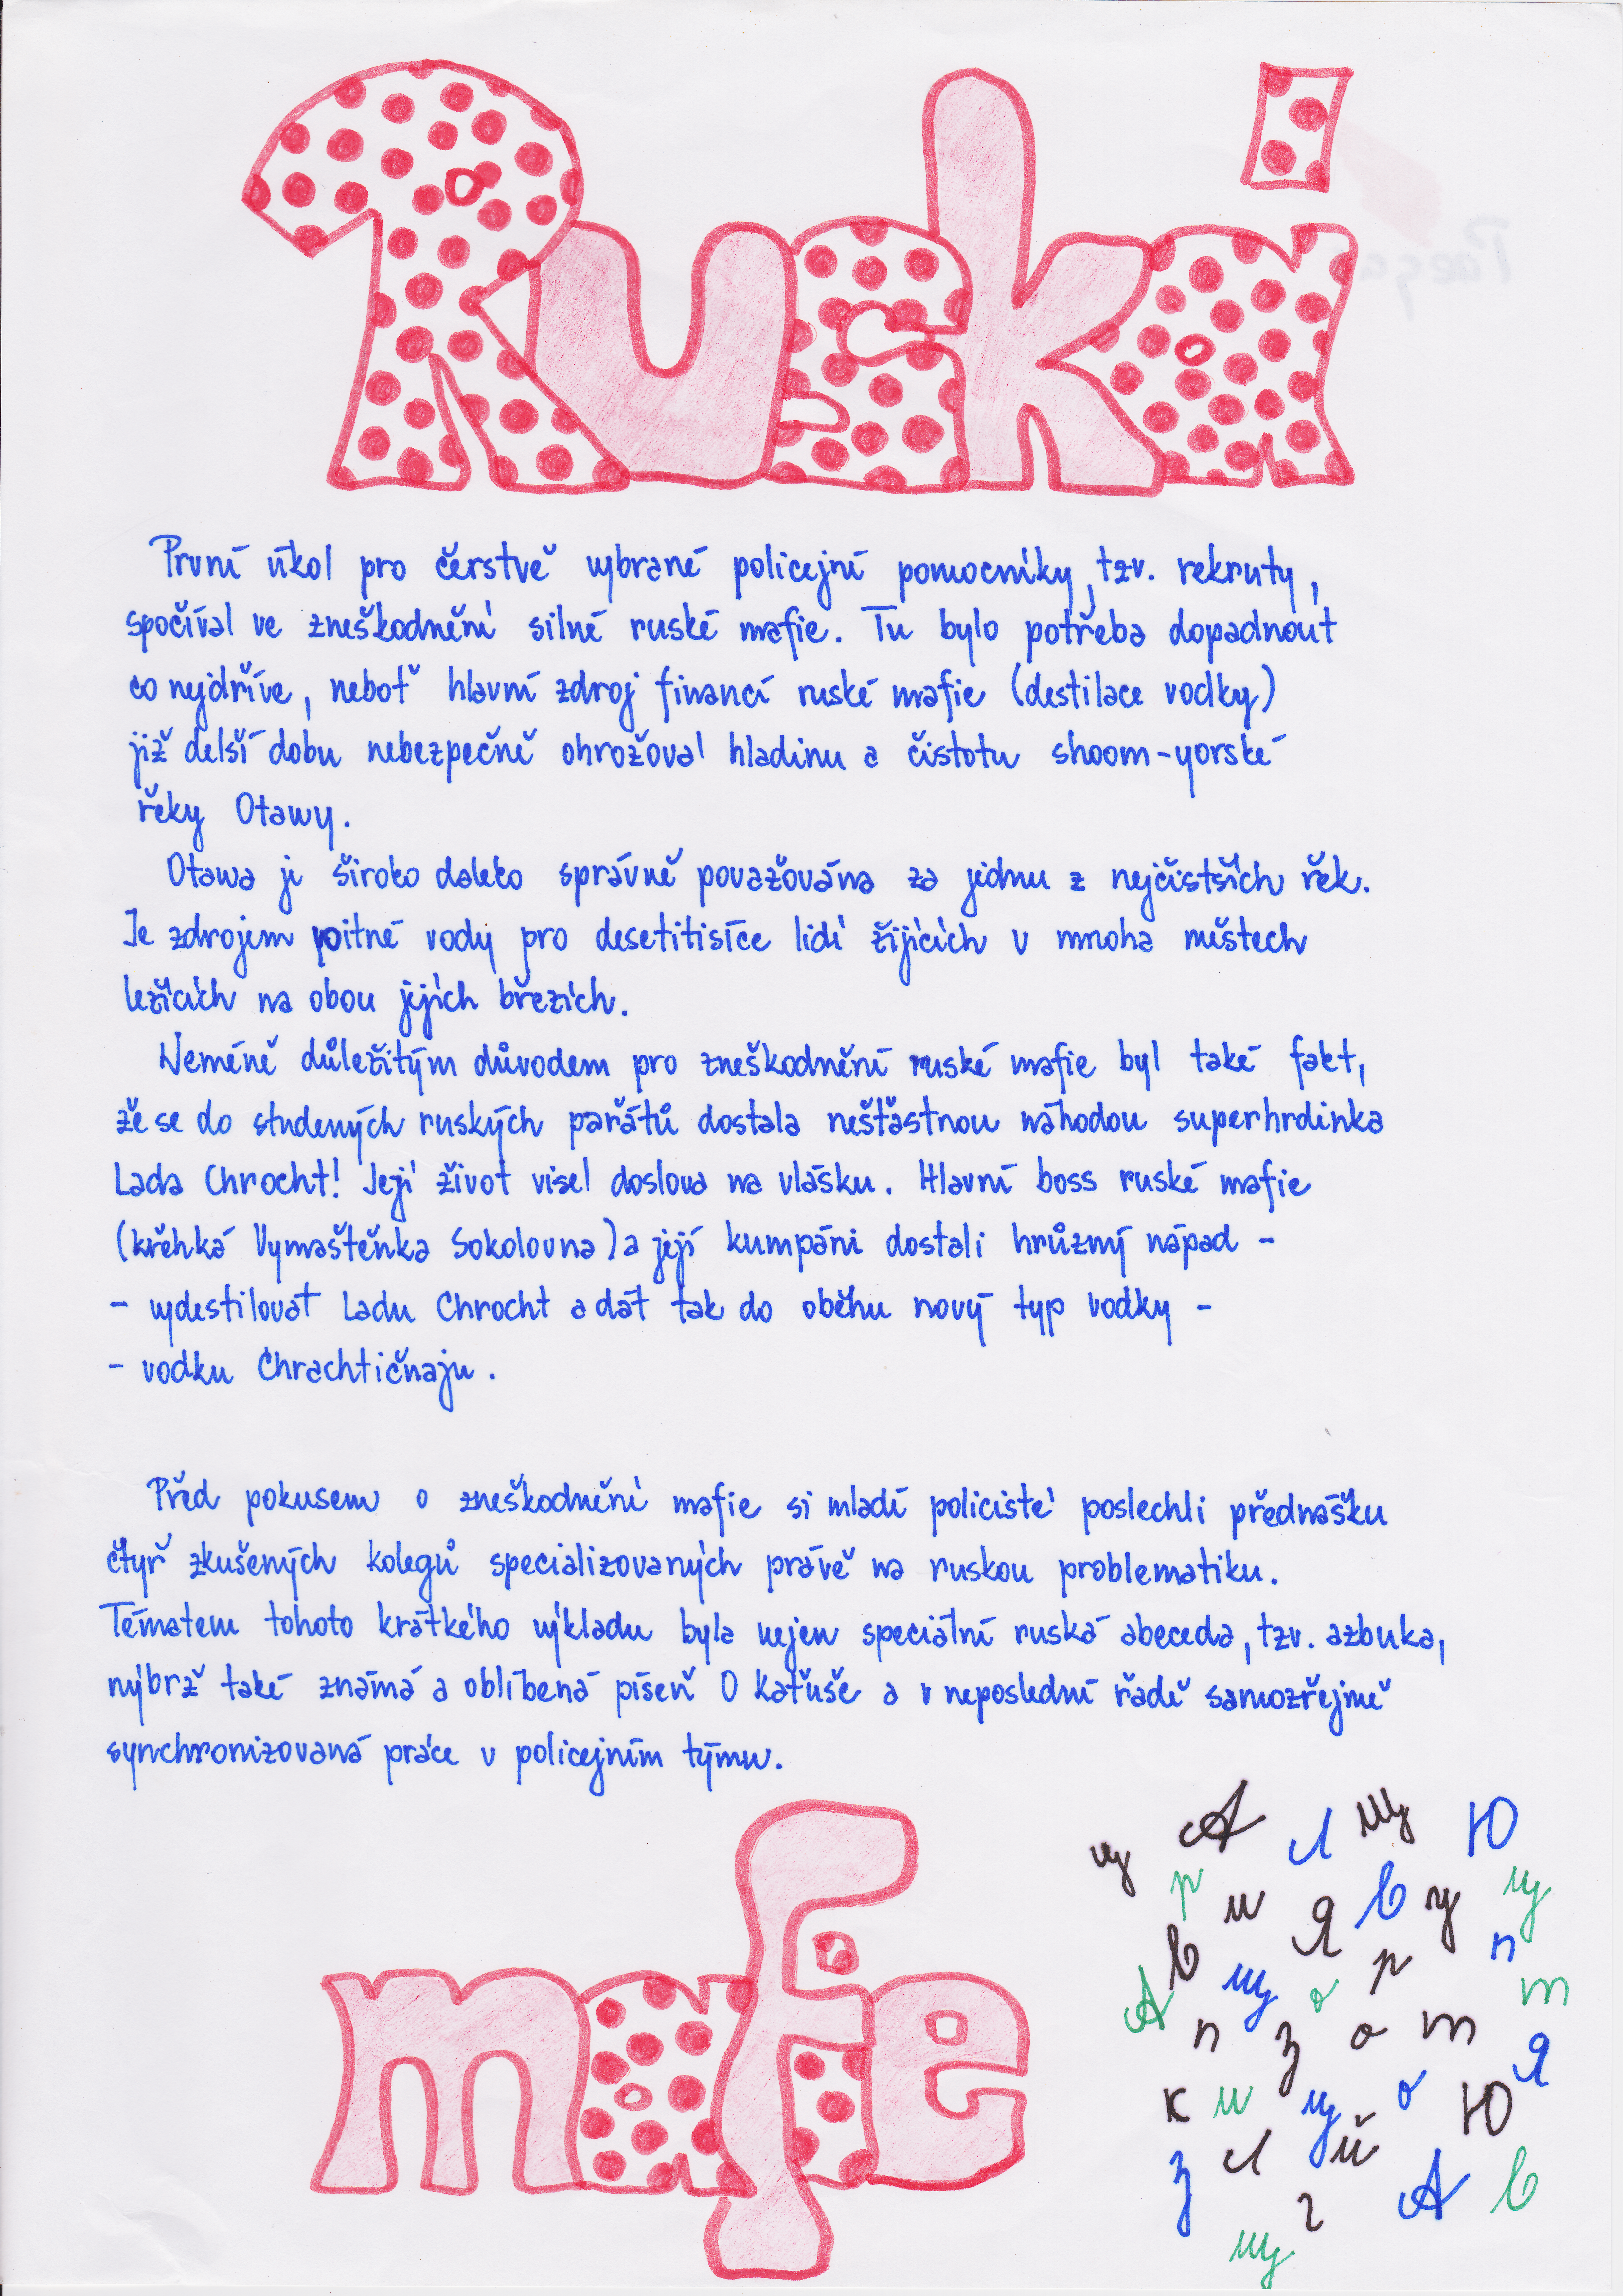 Ruski
První úkol pro čerstvě vybrané policejní pomocníky, tzv. rekruty,
spočíval ve zneškodnění silné ruské mafie. Tu bylo potřeba dopadnout
co nejdříve, neboť hlavní zdroj financí ruské mafie (destilace vodky)
již delší dobu nebezpečně ohrožoval hladinu a čistotu shoom-yorské
řeky Otawy.
Otawa je široko daleko správně považována za jednu z nejčistších řek.
Je zdrojem pitné vody pro desetitisíce lidí žijících v mnoha městech
ležících na obou jejích březích.
Neméně důležitým důvodem pro zneškodnění ruské mafie byl také fakt,
že se do studených ruských pařátů dostala nešťastnou náhodou superhrdinka
Lada Chrocht! Její život visel doslova na vlásku. Hlavní boss ruské mafie
(křehká Vymaštěnka Sokolovna) a její kumpáni dostali hrůzný nápad -
- vydestilovat Ladu Chrocht a dát tak do oběhu nový typ vodky -
- vodku Chrachtičnaju.
Před pokusem o zneškodnění mafie si mladí policisté poslechli přednášku
čtyř zkušených kolegů specializovaných právě na ruskou problematiku.
Tématem tohoto krátkého výkladu byla nejen speciální ruská abeceda, tzv. azbuka,
nýbrž také známá a oblíbená píseň O Kaťuše a v neposlední řadě samozřejmě
synchronizovaná práce v policejním týmu.
mafie
ц А л щ Ю
р и Я в у ц
в щ о р п
А п з о т т
к и ц о Ю Я
з л й А в
щ г